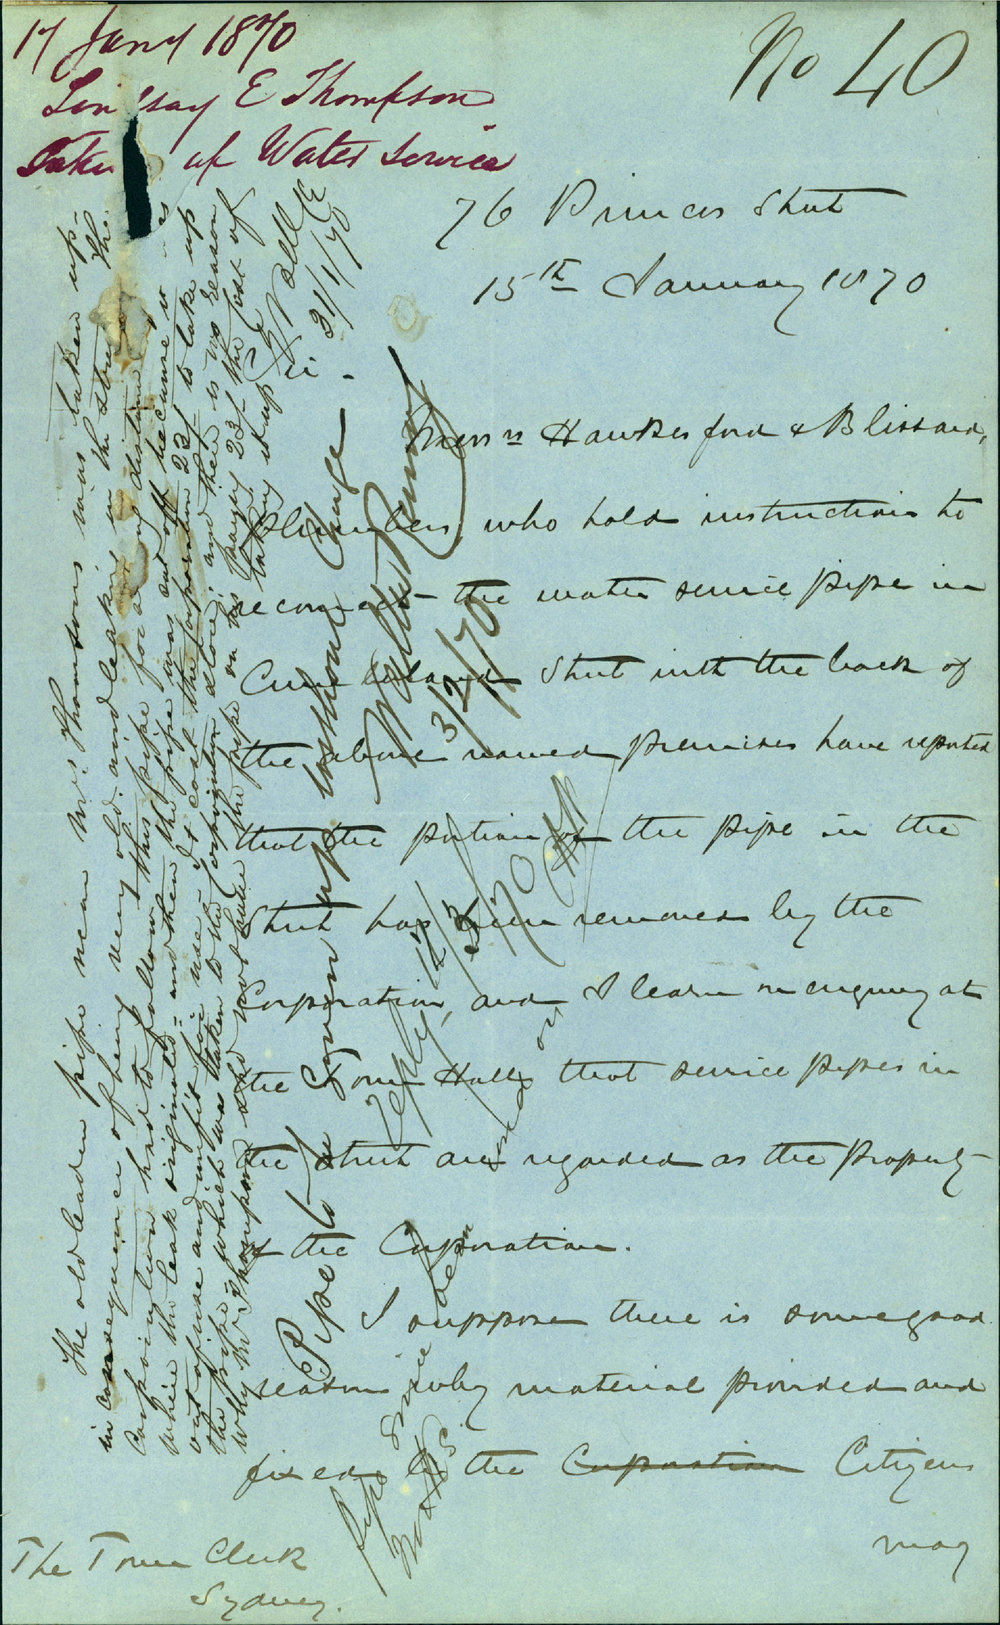 17 Jany 1870
Lindsay E Thompson
up Water Service
No 40
76 Princes Street
15th January 1870
Messrs Hawkesford & Blissard,
Plumbers, who hold instructions to
reconnect the water service pipe in
Cumberland Street with the back of
the above named premises have reported
that the portion of the pipe in the
Street has been removed by the
Corporation, and I learn on enquiry at
the Town Hall that service pipes in
the street are regarded as the property
of the Corporation.
I suppose there is some good
reason why material provided and
fixed by the Corporation Citizens
may
The Town Clerk
Sydney.
The old leaden pipe near Mrs Thomsons was taken up
in consequence of being very old and leaking in the street the
Corporation had to follow this pipe for a long distance
where the leak originated and when the pipe was cut off became
out of use and unfit for use - It cost the Corporation 23/ to take up
the pipe which was taken to the Corporation store, and there is no reason
why Mr Thompson should not have the pipe on his paying 23/ the cost of
taking it up
31/1/70
Pipe to be given up without charge
3/2/70
Reply